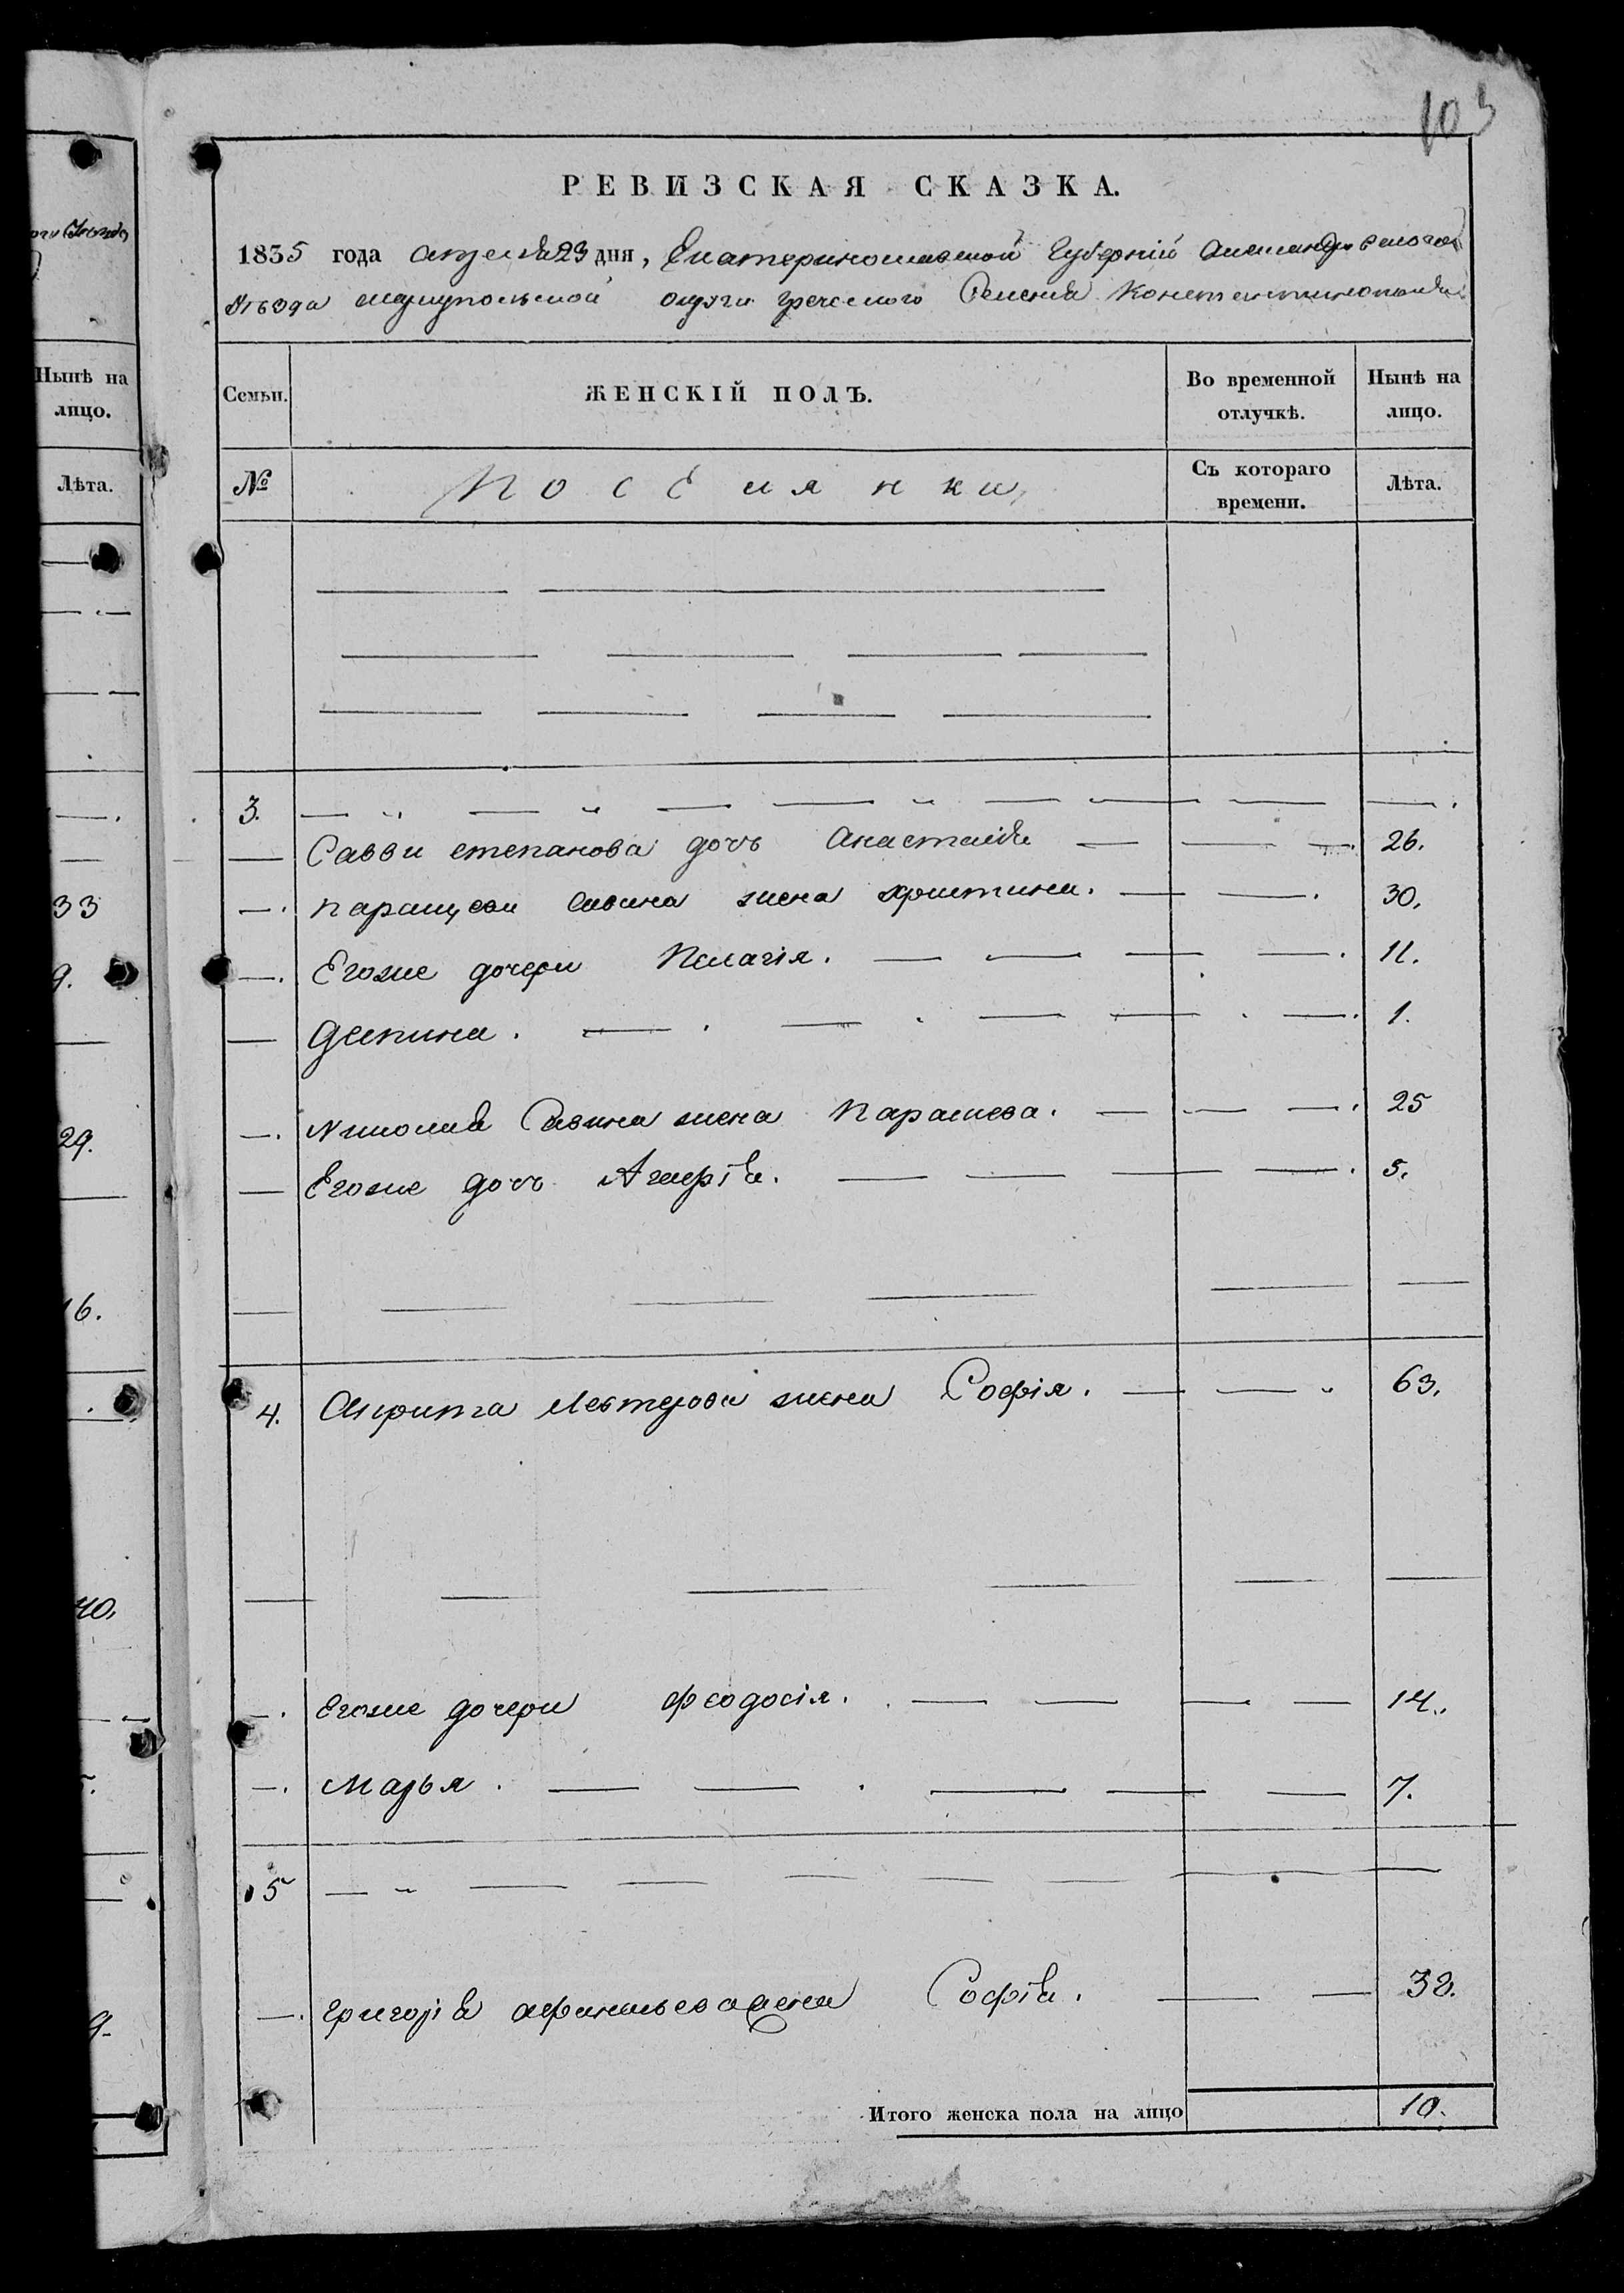 103
РЕВИЗСКАЯ СКАЗКА.
1835 года апреля 23 дня, Екатеринославской Губерніи Александровскаго
Уѣзда мариупольской округи греческого Селенія Константинополя
Семьи. ЖЕНСКІЙ ПОЛЪ. Во временной отлучкѣ. Нынѣ на лицо.
№ Поселянки Съ котораго времени. Лѣта.
3.
Савви степанова дочь Анастасія 26.
паращеви савина жена христина. 30.
Егоже дочери Пелагія. 11.
Деспина. 1.
Николая Савина жена Парасκева. 25
Егоже дочь 5.
4. Лефтерова жена Софія. 63.
Егоже дочери феодосія. 14.
Марья. 7.
5
григорія афанасьева жена Софія. 32.
Итого женска пола на лицо 10.
Нынѣ на
лицо.
Лѣта.
33
9.
29.
16.
40.
9.